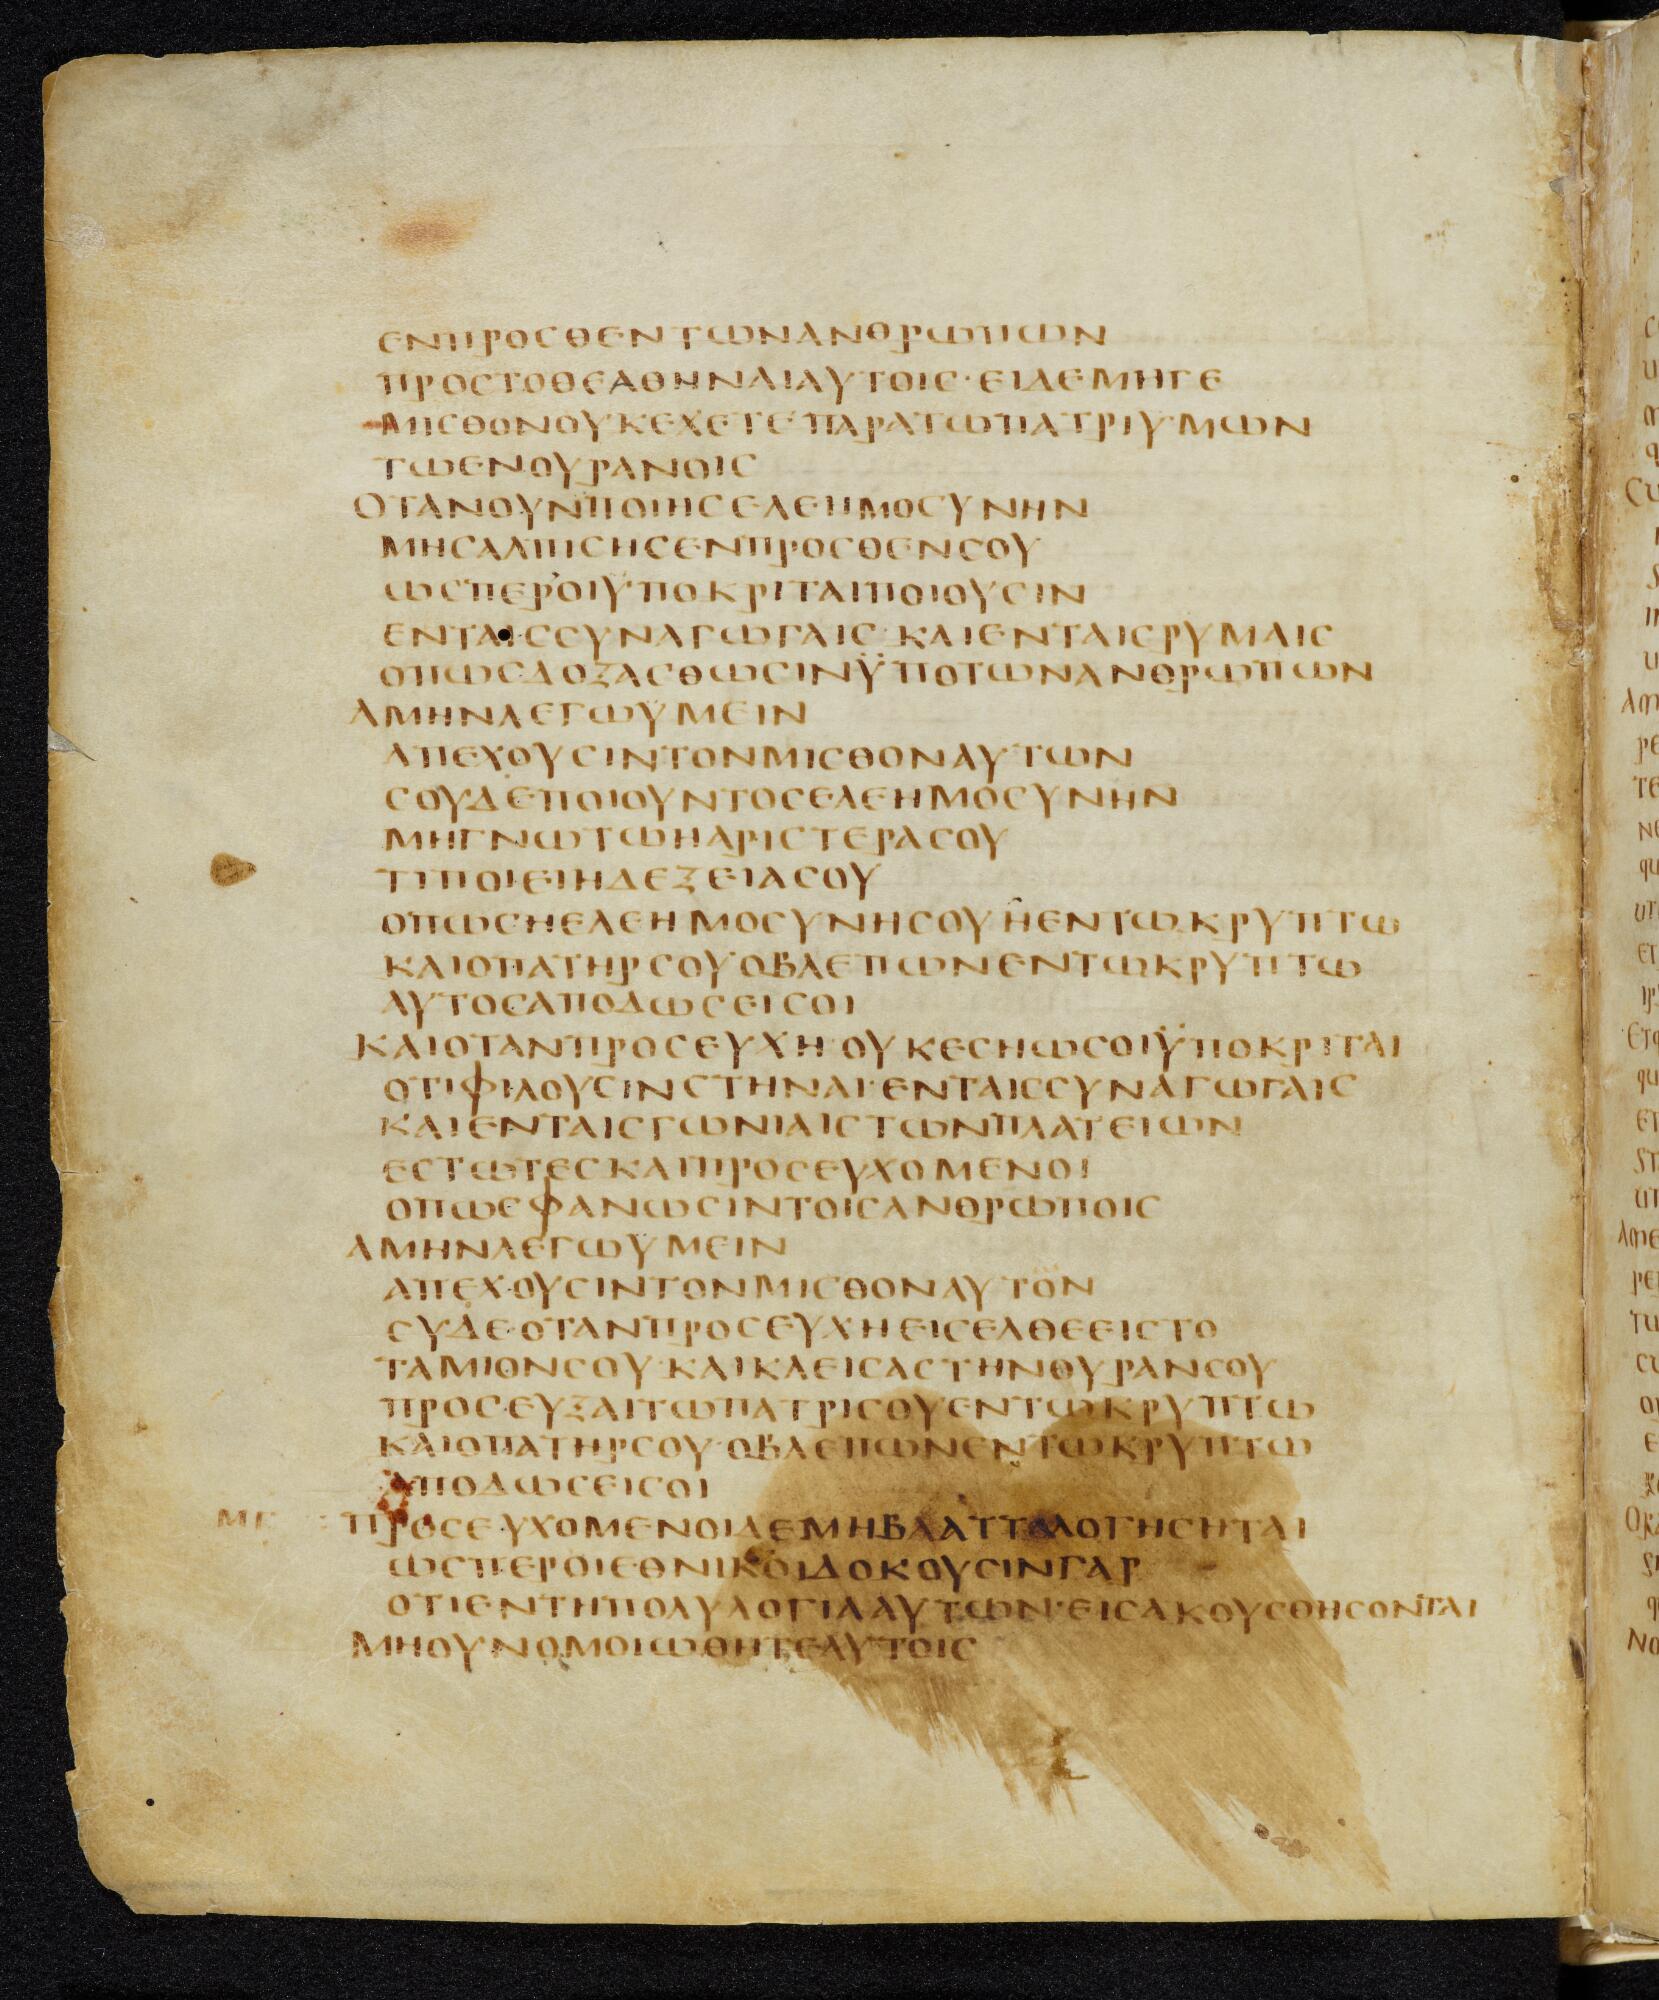 ΕΝΠΡΟCΘΕΝΤΩΝΑΝΘΡΩΠΩΝ
ΠΡΟCΤΟΘΕΑΘΗΝΑΙΑΥΤΟΙC·ΕΙΔΕΜΗΓΕ
ΜΙCΘΟΝΟΥΚΕΧΕΤΕΠΑΡΑΤΩΠΑΤΡΙΥΜΩΝ
ΤΩΕΝΟΥΡΑΝΟΙC
ΟΤΑΝΟΥΝΠΟΙΗCΕΛΕΗΜΟCΥΝΗΝ
ΜΗCΑΛΠΙCΗCΕΝΠΡΟCΘΕΝCΟΥ
ΩCΠΕΡΟΙΥΠΟΚΡΙΤΑΙΠΟΙΟΥCΙΝ
ΕΝΤΑΙCCΥΝΑΓΩΓΑΙC·ΚΑΙΕΝΤΑΙCΡΥΜΑΙC
ΟΠΩCΔΟΞΑCΘΩCΙΝΫΠΟΤΩΝΑΝΘΡΩΠΩΝ
ΑΜΗΝΛΕΓΩΫΜΕΙΝ
ΑΠΕΧΟΥCΙΝΤΟΝΜΙCΘΟΝΑΥΤΩΝ
CΟΥΔΕΠΟΙΟΥΝΤΟCΕΛΕΗΜΟCΥΝΗΝ
ΜΗΓΝΩΤΩΗΑΡΙCΤΕΡΑCΟΥ
ΤΙΠΟΙΕΙΗΔΕΞΕΙΑCΟΥ
ΟΠΩCΗΕΛΕΗΜΟCΥΝΗCΟΥΗΕΝΤΩΚΡΥΠΤΩ
ΚΑΙΟΠΑΤΗΡCΟΥΟΒΛΕΠΩΝΕΝΤΩΚΡΥΠΤΩ
ΑΥΤΟCΑΠΟΔΩCΕΙCΟΙ
ΚΑΙΟΤΑΝΠΡΟCΕΥΧΗ·ΟΥΚΕCΗΩCΟΙΫΠΟΚΡΙΤΑΙ
ΟΤΙΦΙΛΟΥCΙΝCΤΗΝΑΙ·ΕΝΤΑΙCCΥΝΑΓΩΓΑΙC
ΚΑΙΕΝΤΑΙCΓΩΝΙΑΙCΤΩΝΠΛΑΤΕΙΩΝ
ΕCΤΩΤΕCΚΑΙΠΡΟCΕΥΧΟΜΕΝΟΙ
ΟΠΩCΦΑΝΩCΙΝΤΟΙCΑΝΘΡΩΠΟΙC
ΑΜΗΝΛΕΓΩΫΜΕΙΝ
ΑΠΕΧΟΥCΙΝΤΟΝΜΙCΘΟΝΑΥΤΟΝ
CΥΔΕ·ΟΤΑΝΠΡΟCΕΥΧΗΕΙCΕΛΘΕΕΙCΤΟ
ΤΑΜΙΟΝCΟΥ·ΚΑΙΚΛΕΙCΑCΤΗΝΘΥΡΑΝCΟΥ
ΠΡΟCΕΥΞΑΙΤΩΠΑΤΡΙCΟΥΕΝΤΩΚΡΥΠΤΩ
ΚΑΙΟΠΑΤΗΡCΟΥ·ΟΒΛΕΠΩΝΕΝΤΩΚΡΥΠΤΩ
ΑΠΟΔΩCΕΙCΟΙ
ΠΡΟCΕΥΧΟΜΕΝΟΙΔΕΜΗΒΛΑΤΤΑΛΟΓΗCΗΤΑΙ
ΩCΠΕΡΟΙΕΘΝΙΚΟΙΔΟΚΟΥCΙΝΓΑΡ
ΟΤΙΕΝΤΗΠΟΛΥΛΟΓΙΑΑΥΤΩΝ·ΕΙCΑΚΟΥCΘΗCΟΝΤΑΙ
ΜΗΟΥΝΟΜΟΙΩΘΗΤΕΑΥΤΟΙC